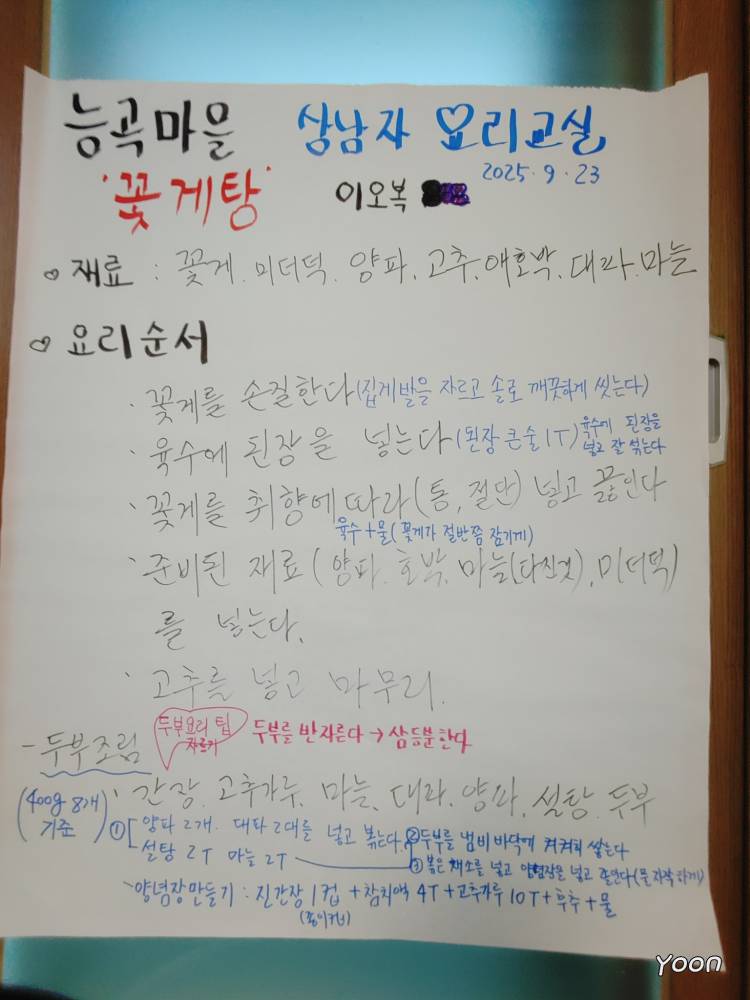 능곡마을 상남자 요리교실
2025·9·23
'꽃게탕' 이오복
재료 : 꽃게. 미더덕. 양파. 고추. 애호박. 대파. 마늘
요리순서
· 꽃게를 손질한다 (집게발을 자르고 솔로 깨끗하게 씻는다)
· 육수에 된장을 넣는다 (된장 큰술 1T) 육수에 된장을 넣고 잘 섞는다
· 꽃게를 취향에 따라 (통, 절단) 넣고 끓인다
육수+물 (꽃게가 절반쯤 잠기게)
· 준비된 재료 (양파. 호박. 마늘(다진것), 미더덕)
를 넣는다.
· 고추를 넣고 마무리.
- 두부조림 두부요리 팁 자르기 두부를 반자른다 → 삼등분한다
(400g 8개 기준) · 간장. 고추가루. 마늘. 대파. 양파. 설탕. 두부
① 양파 2개. 대파 2대를 넣고 볶는다. ② 두부를 냄비 바닥에 켜켜히 쌓는다
설탕 2T 마늘 2T ③ 볶은 채소를 넣고 양념장을 넣고 졸인다 (물 자작하게)
양념장만들기 : 진간장 1컵 + 참치액 4T + 고추가루 10T + 후추 + 물
(종이컵)
Yoon